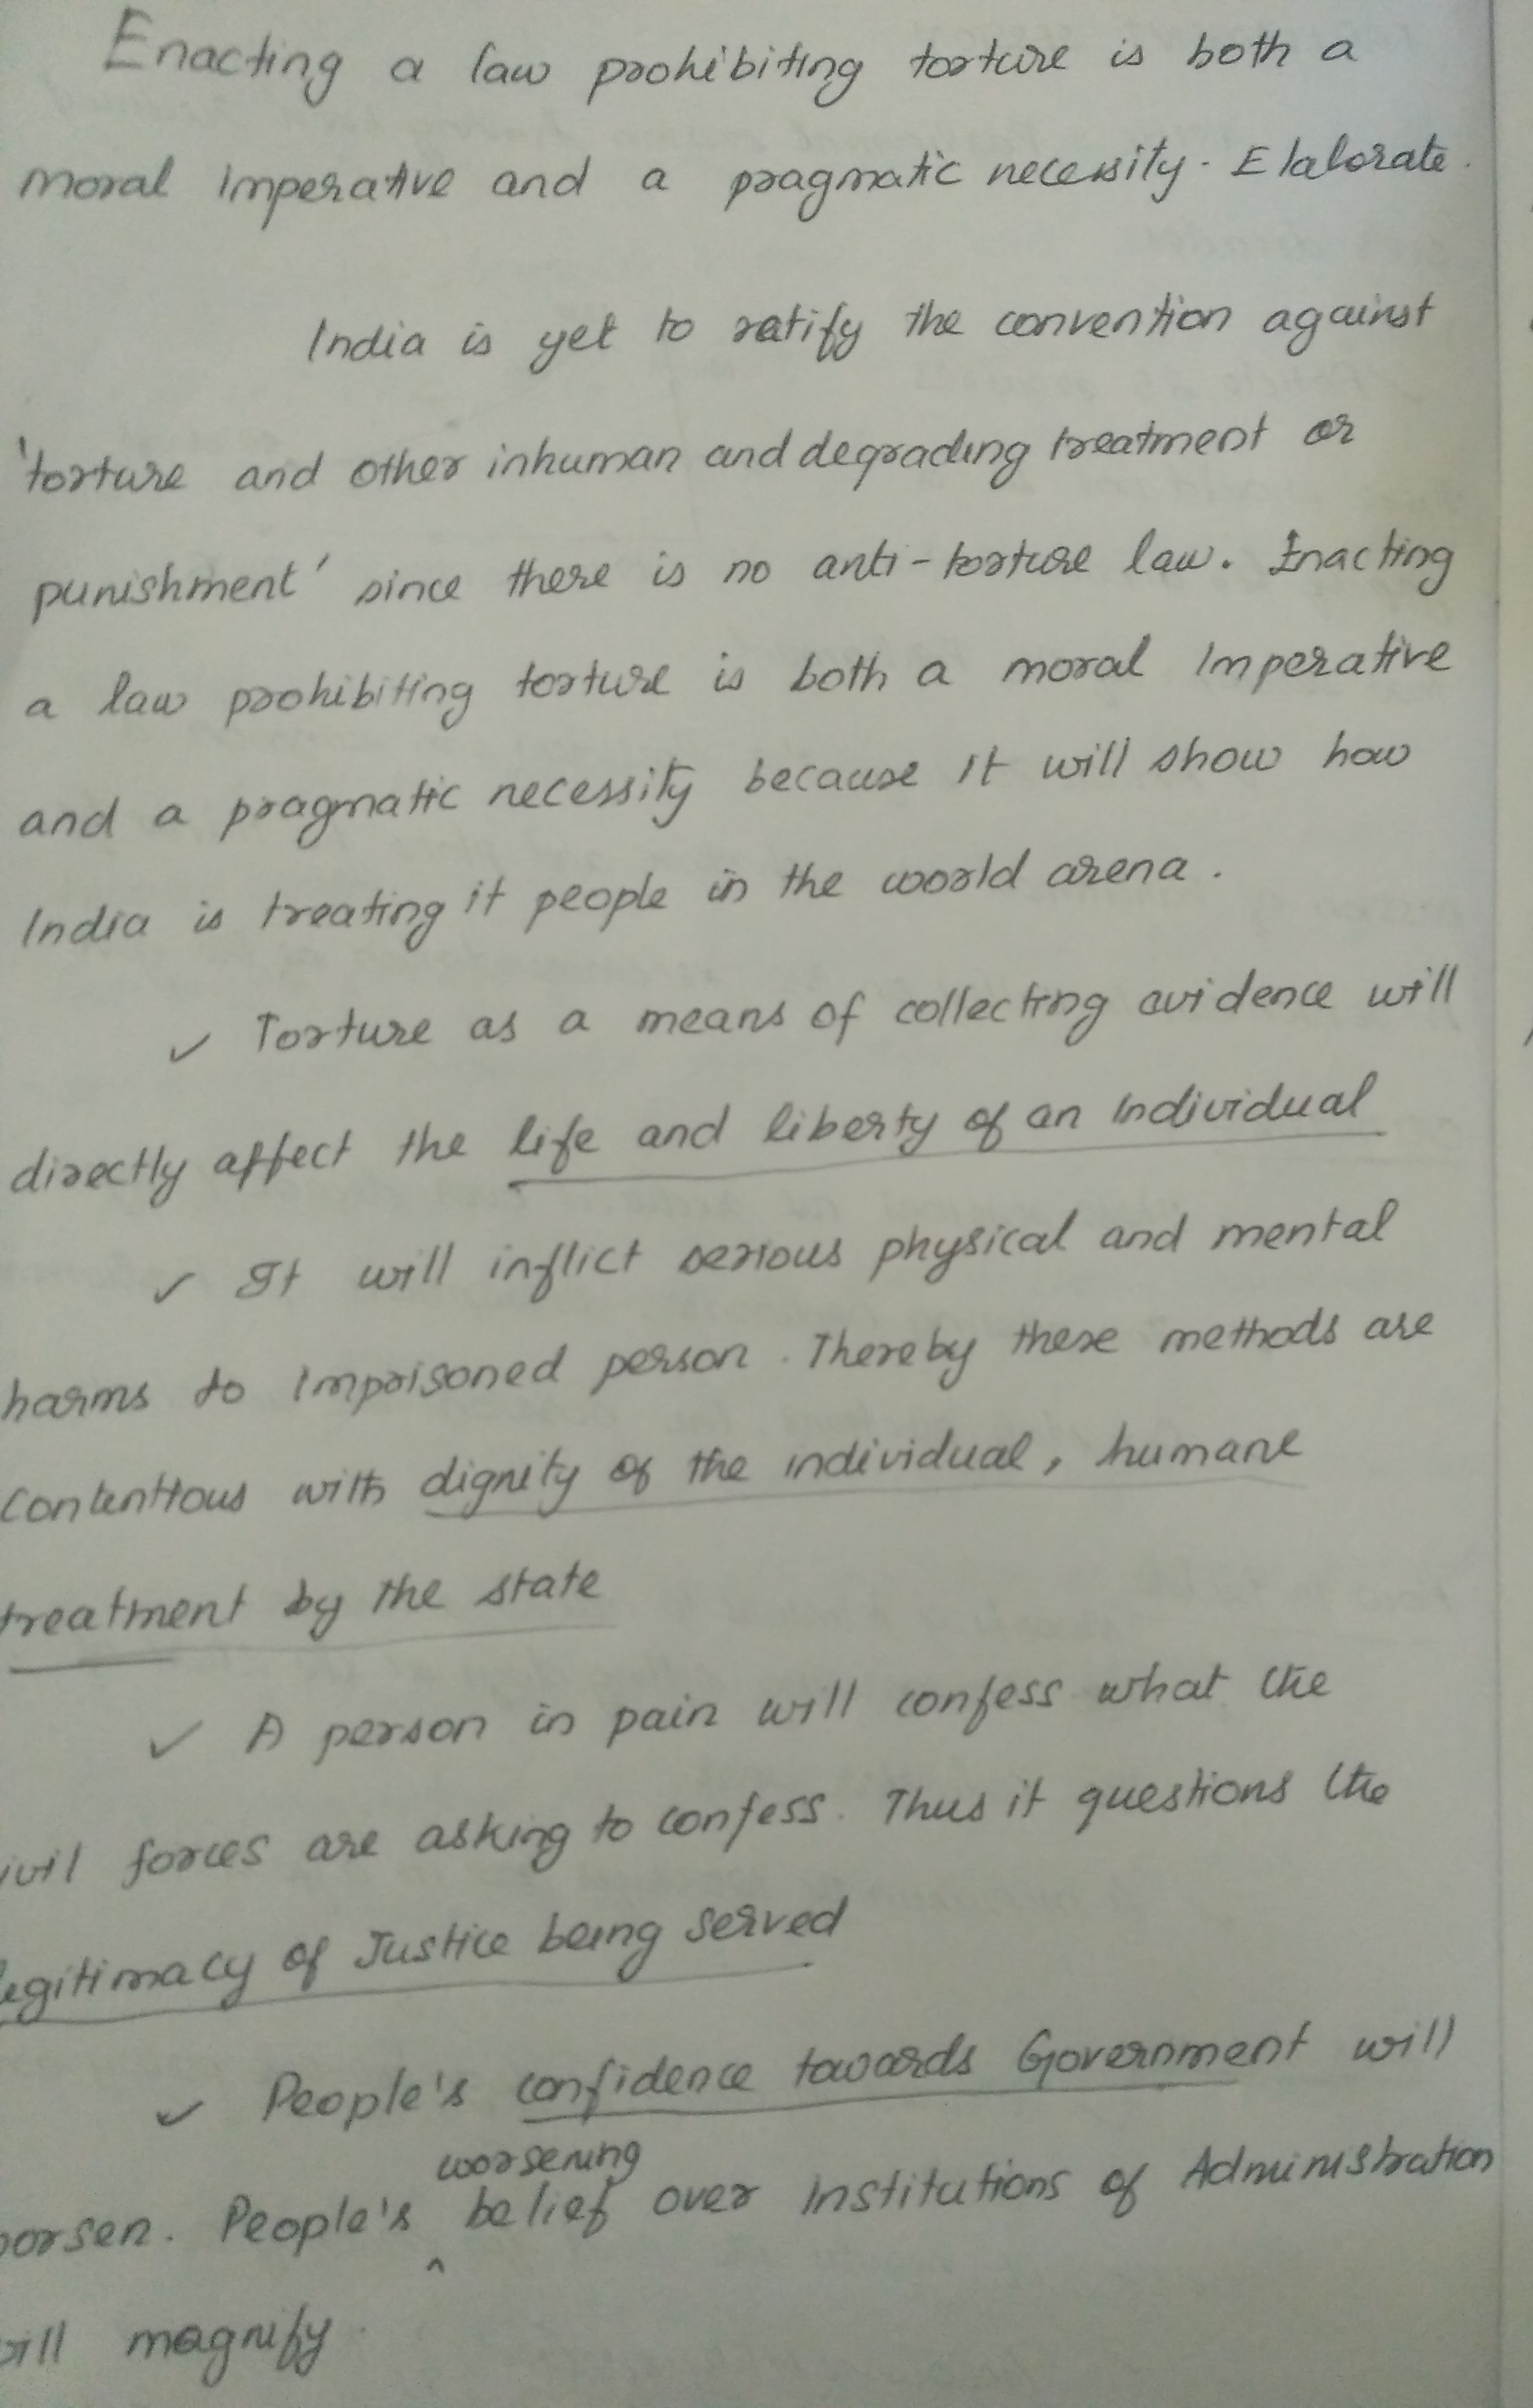 Enacting a law prohibiting torture is both a
moral Imperative and a pragmatic necessity. Elaborate.
India is yet to ratify the convention against
'torture and other inhuman and degrading treatment or
punishment' since there is no anti-torture law. Enacting
a law prohibiting torture is both a moral Imperative
and a pragmatic necessity because it will show how
India is treating it people in the world arena.
✓ Torture as a means of collecting evidence will
directly affect the life and liberty of an Individual
✓ It will inflict serious physical and mental
harms to Imprisoned person. Thereby these methods are
contentious with dignity of the individual, humane
treatment by the state
✓ A person in pain will confess what the
ivil forces are asking to confess. Thus it questions the
legitimacy of Justice being served
✓ People's confidence towards Government will
worsening
orsen. People's ^ belief over institutions of Administration
will magnify.